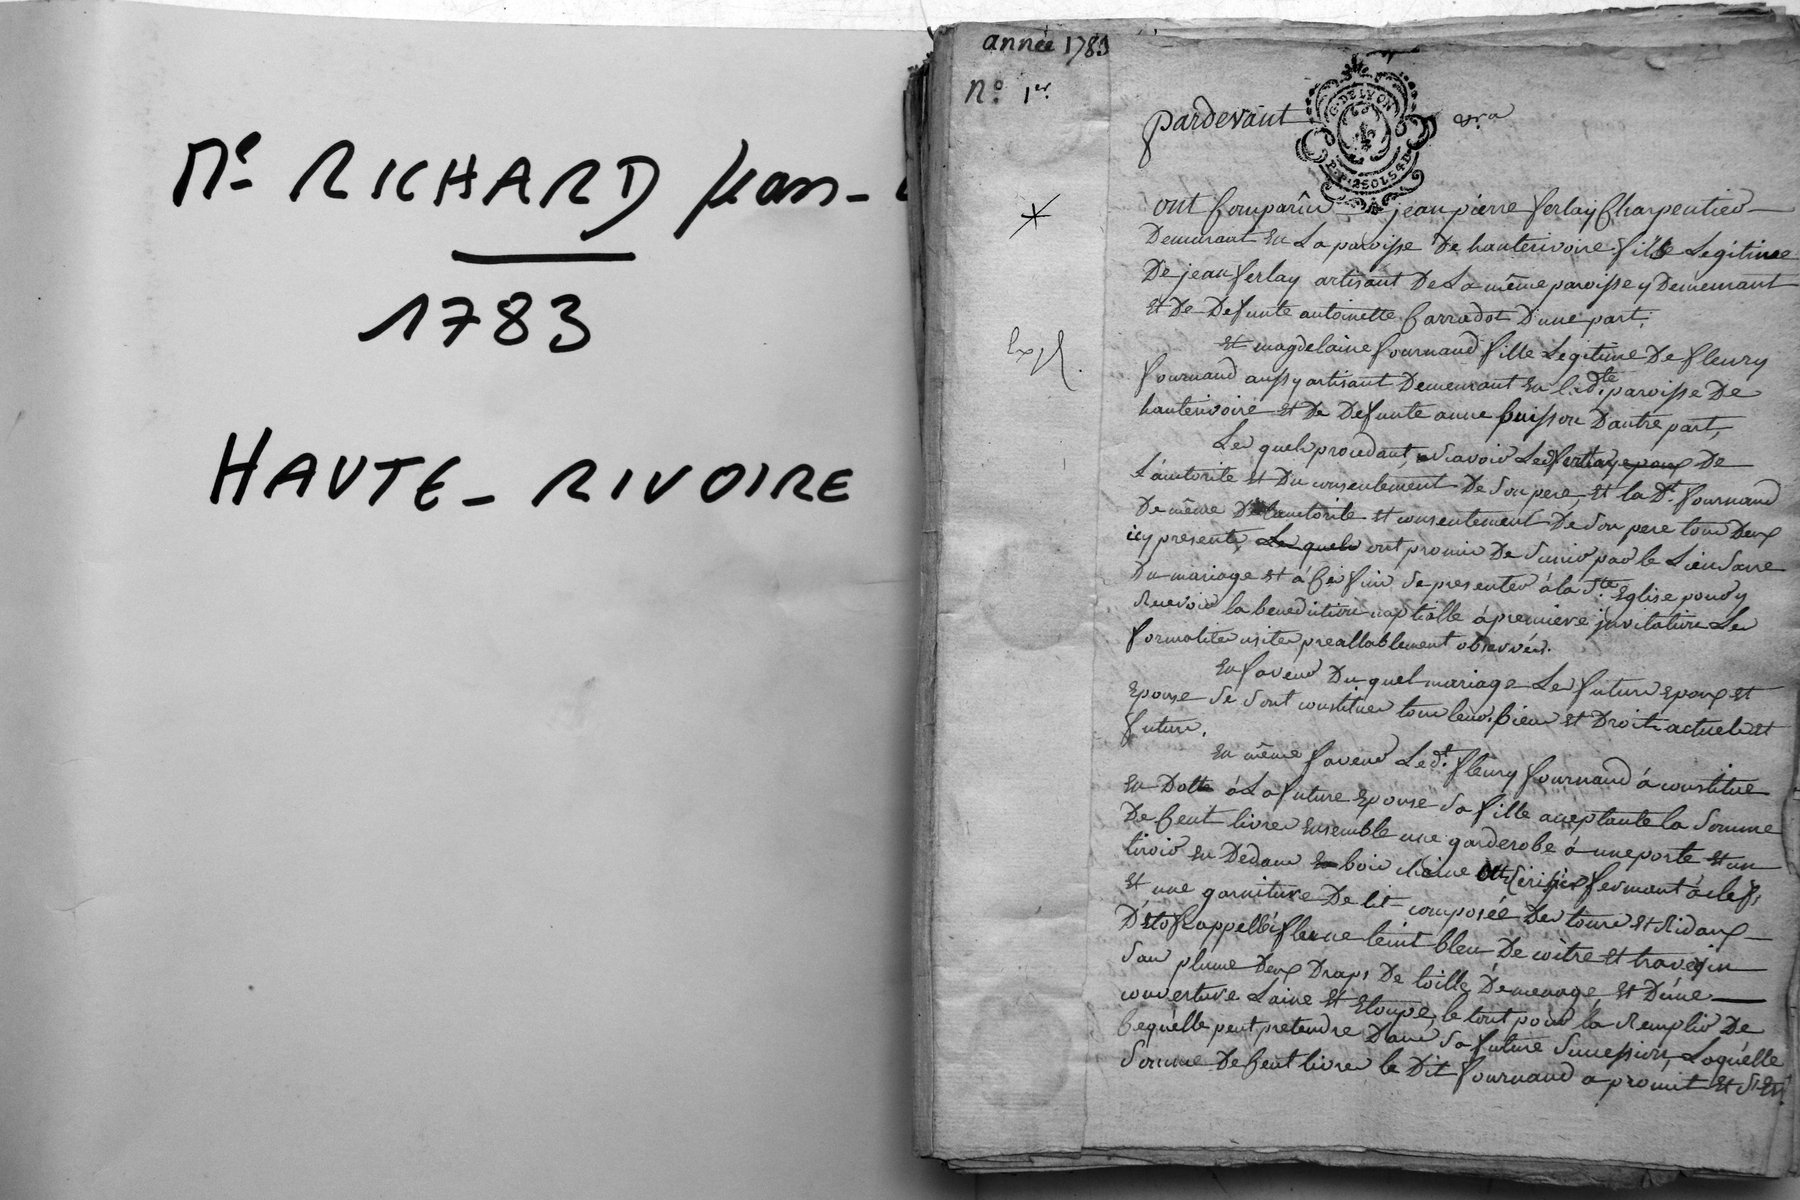 Me RICHARD Jean-
1783
HAUTE-RIVOIRE
année 1783
N° 1er.
pardevant
G. DE LYON
ont Comparûs jean pierre ferlay Charpentier
Demeurant en La paroisse De hauterivoire fils Legitime
De jean ferlay artisant De La même paroisse y Demeurant
et De Defunte antoinette Carradot D'une part;
et magdelaine fournand fille Legitime De fleury
fournand aussy artisant Demeurant en lad.te paroisse De
hauterivoire et De Defunte anne buisson D'autre part,
Lesquels procedant, sçavoir Led ferlay epoux De
L'autorité et Du consentement De Son pere, et la D.t fournand
De même De L'autorité et consentement De Son pere tous Deux
icy presents, Lesquels ont promis De S'unir par le Lien Sacré
Du mariage et à Cés fins Se presenter à la S.te Eglise pour y
Recevoir la benediction nuptialle à premiere jnvitation Les
formalités usitées preallablement observées.
En faveur Du quel mariage Les futurs epoux et
Epouse Se Sont constitués tous leurs biens et Droits actuels et
futurs.
En même faveur Led.t fleury fournand à constitué
en Dotte à La future Epouse Sa fille acceptante la Somme
De Cent livres ensemble une garderobe à une porte et un
tiroir en Dedans bois chaine et Cerisier fermant à clef,
et une garniture De lit composée De tours et Ridaux
D'étoffe appellée fleurue teint bleu De coitre et traversin
San plume Deux Draps De toille De menage, et D'une
couverture Laine et Etoupe, le tout pour la Remplir De
Cequ'elle peut pretendre Dans Sa future Succession, Laquelle
Somme De Cent livres le Dit fournand a promit et S'est